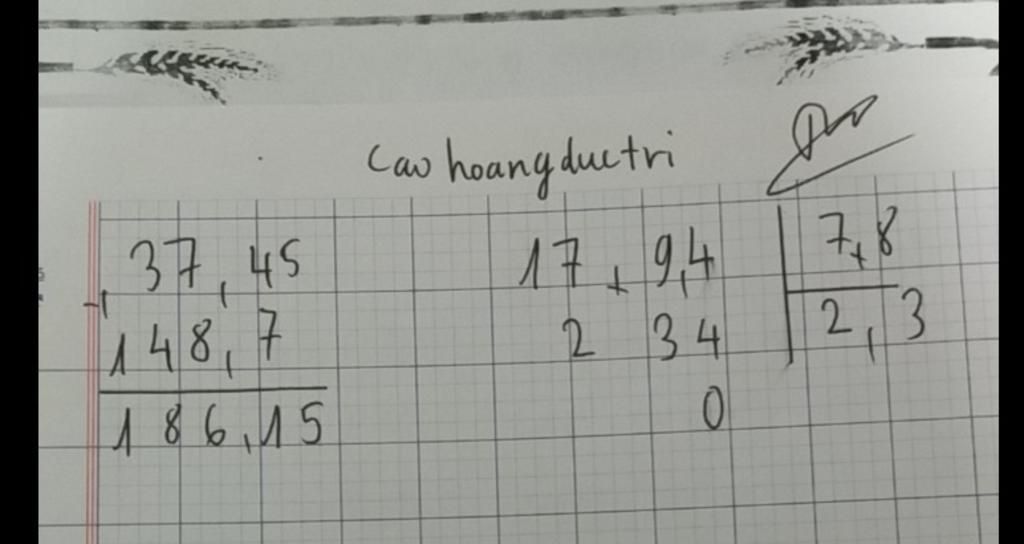 Cao hoangductri
37,45
+
148,7
186,15
17,9,4 7,8
2 34 2,3
0